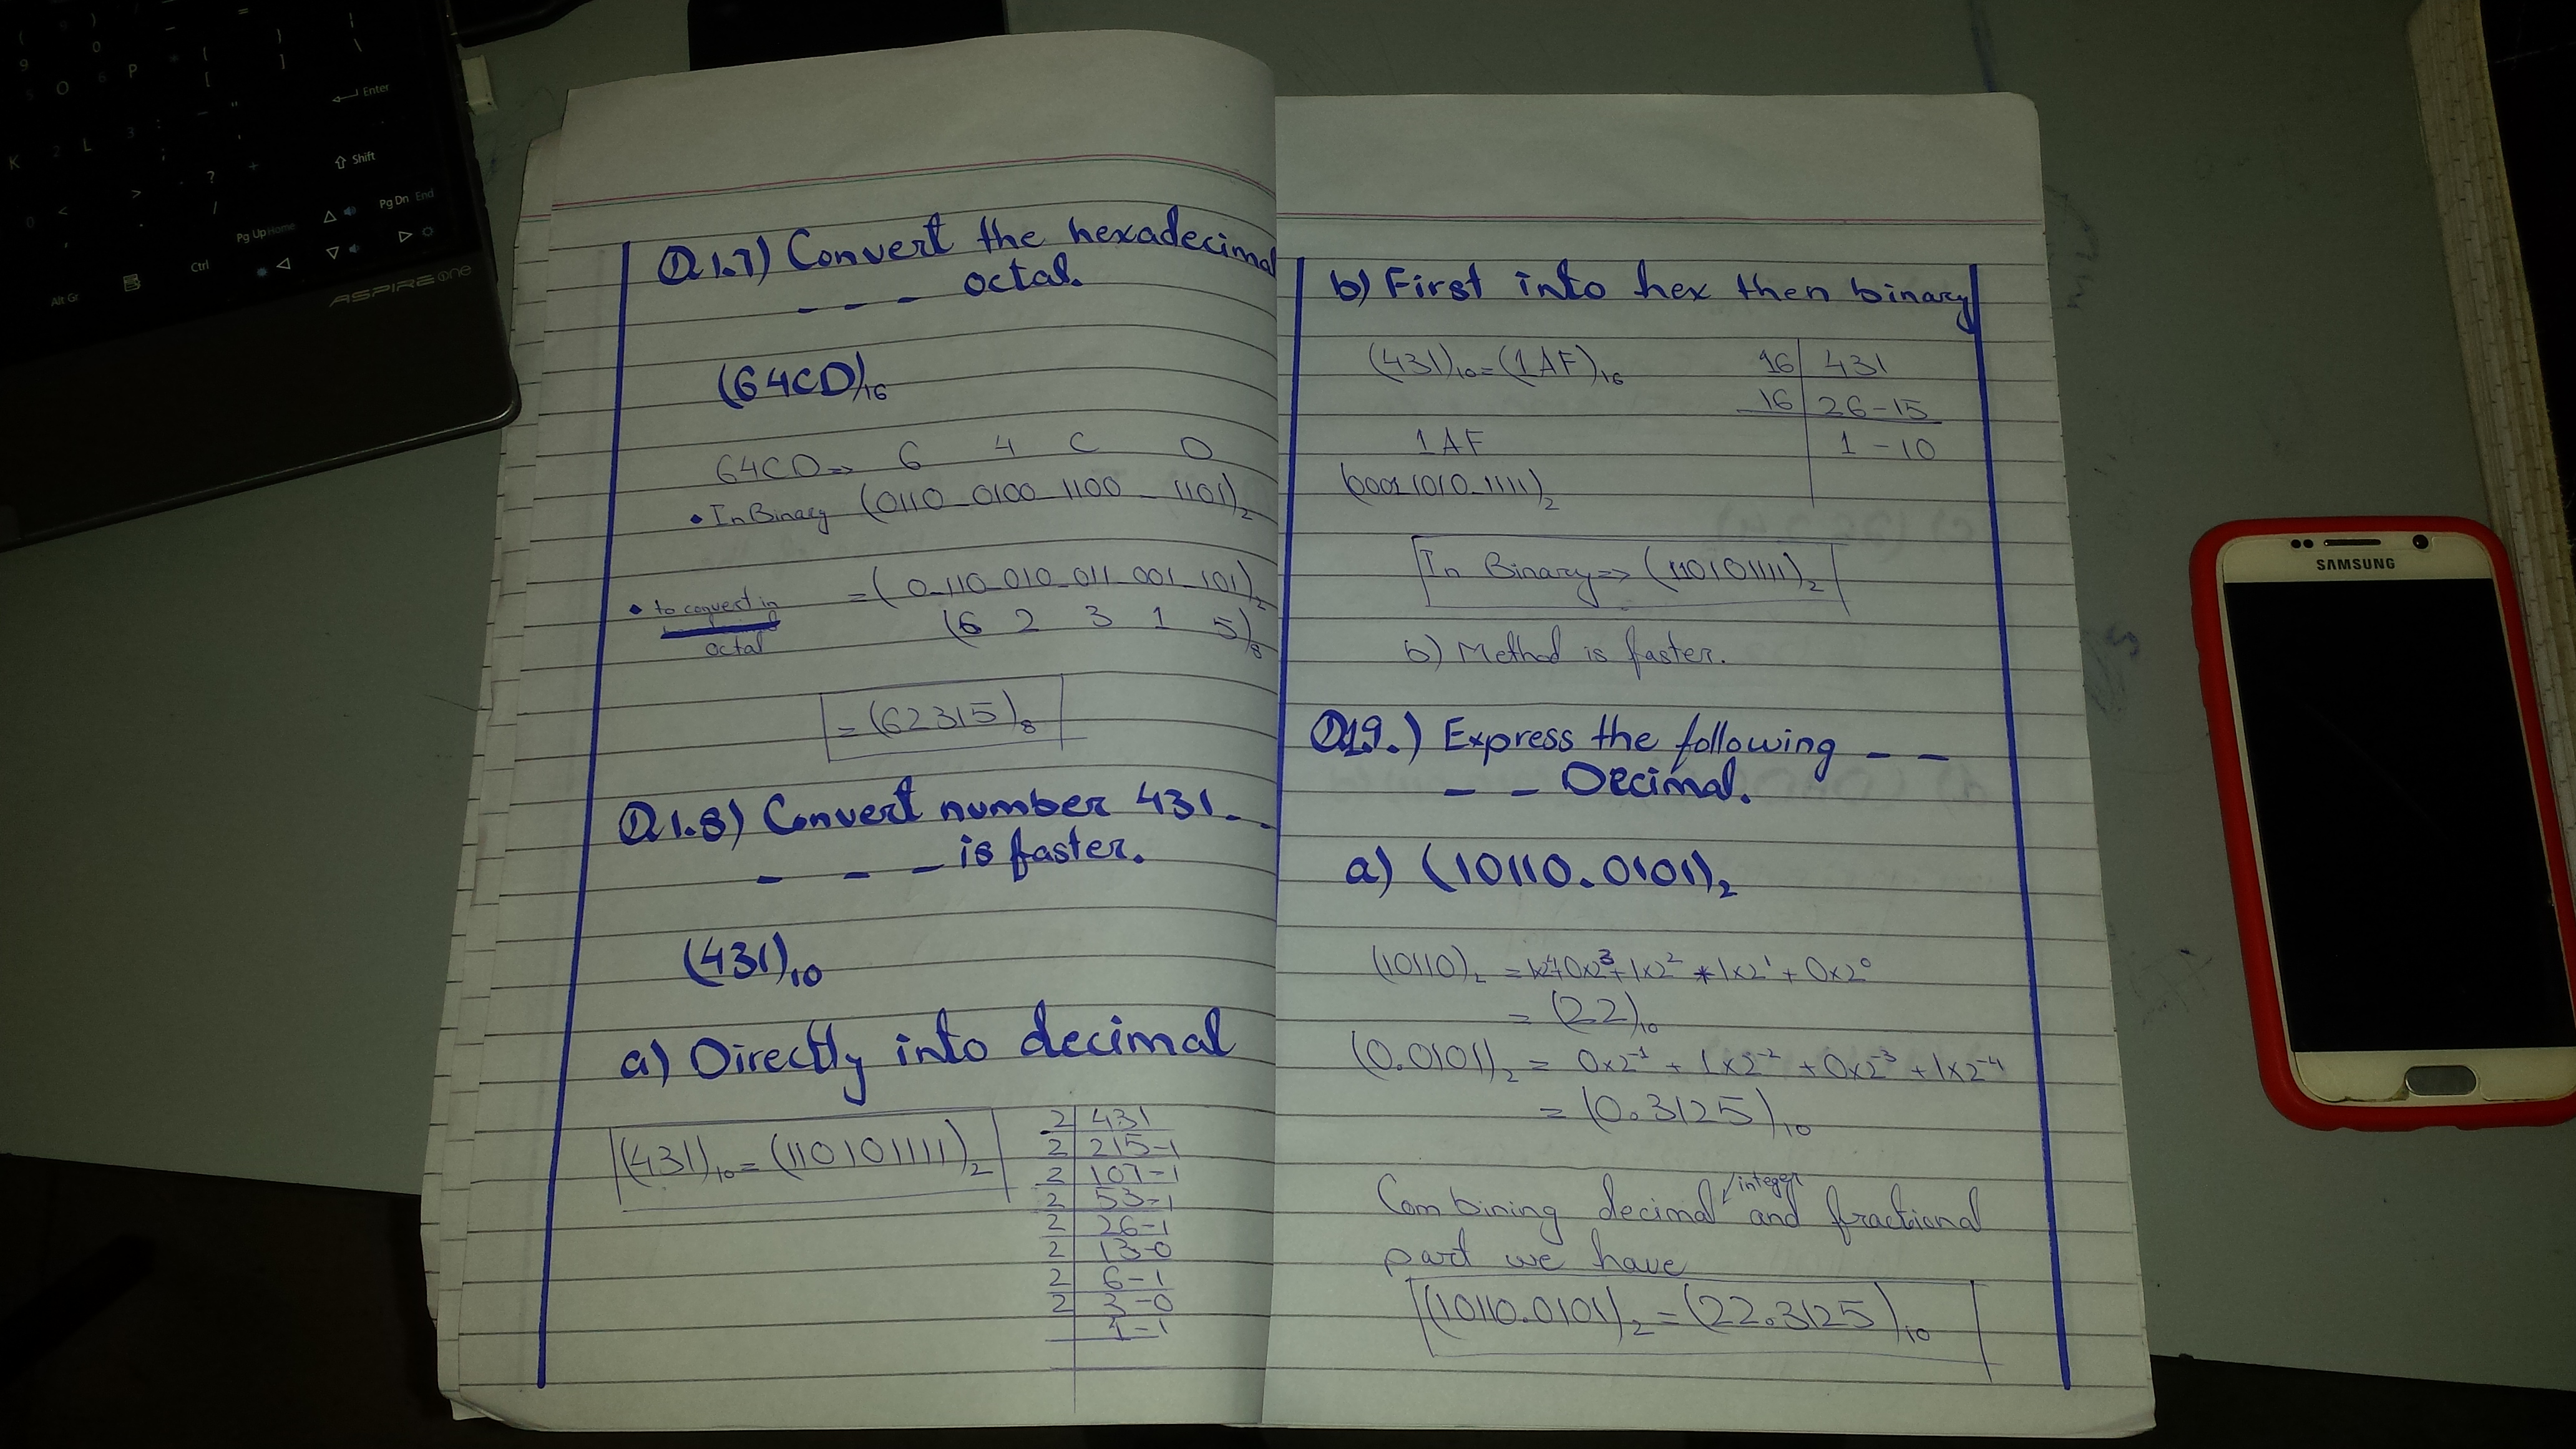 Q1.7) Convert the hexadecimal
- - - octal.
(64CD)16
64CD => 6 4 C D
• In Binary (0110 0100 1100 1101)2
• to convert in octal
= (0 110 010 011 001 101)2
(6 2 3 1 5)8
= (62315)8
Q1.8) Convert number 431 - -
- - - is faster.
(431)10
a) Directly into decimal
(431)10 = (110101111)2
2 431
2 215-1
2 107-1
2 53-1
2 26-1
2 13-0
2 6-1
2 3-0
1-1
b) First into hex then binary
(431)10 = (1AF)16
16 431
16 26-15
1-10
1AF
(0001 1010 1111)2
In Binary => (110101111)2
b) Method is faster.
Q1.9.) Express the following - -
- - Decimal.
a) (10110.0101)2
(10110)2 = 1x2⁴0x2³+1x2²+1x2¹+0x2⁰
= (22)10
(0.0101)2 = 0x2⁻¹ + 1x2⁻² + 0x2⁻³ + 1x2⁻⁴
= (0.3125)10
Combining decimal/integer and fractional
part we have
(10110.0101)2 = (22.3125)10
SAMSUNG
ASPIRE one
Alt Gr
Ctrl
Pg Up Home
Pg Dn End
Shift
Enter